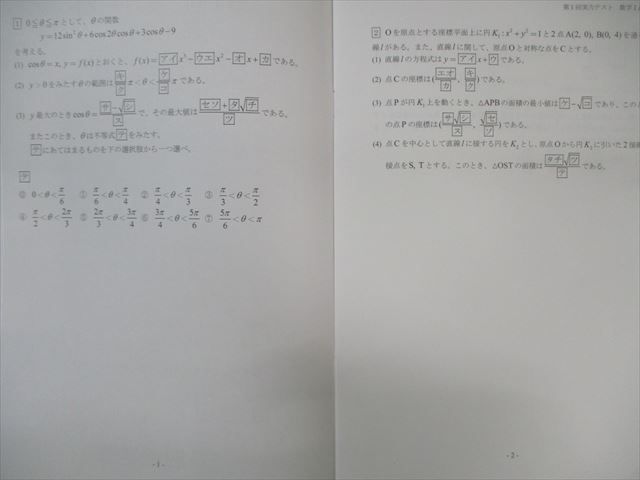 1 0≦θ≦πとして、θの関数
y=12sin²θ+6cos2θcosθ+3cosθ-9
を考える。
(1) cosθ=x, y=f(x)とおくと、f(x)=アイx³-ウエx²-オx+カである。
(2) y>0をみたすθの範囲はキ/クπ<θ<ケ/コπである。
(3) y最大のときcosθ=サ-√シ/スで、その最大値はセソ+タ√チ/ツである。
またこのとき、θは不等式テをみたす。
テにあてはまるものを下の選択肢から一つ選べ。
テ
⓪ 0<θ<π/6 ① π/6<θ<π/4 ② π/4<θ<π/3 ③ π/3<θ<π/2
④ π/2<θ<2π/3 ⑤ 2π/3<θ<3π/4 ⑥ 3π/4<θ<5π/6 ⑦ 5π/6<θ<π
- 1 -
第1回実力テスト 数学I
2 Oを原点とする座標平面上に円K₁:x²+y²=1と2点A(2, 0), B(0, 4)を通
線lがある。また、直線lに関して、原点Oと対称な点をCとする。
(1) 直線lの方程式はy=アイx+ウである。
(2) 点Cの座標は(エオ/カ, キ/ク)である。
(3) 点Pが円K₁上を動くとき、△APBの面積の最小値はケ-√コであり、この
の点Pの座標は(サ√シ/ス, √セ/ソ)である。
(4) 点Cを中心として直線lに接する円をK₂とし、原点Oから円K₂に引いた2接
接点をS, Tとする。このとき、△OSTの面積はタチ√ツ/テである。
- 2 -